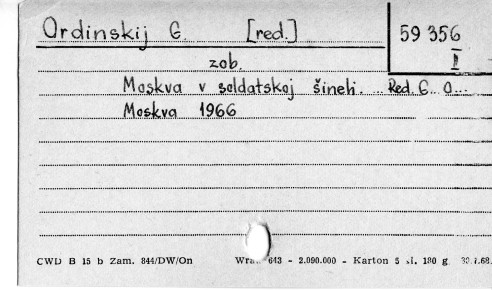 Ordinskij G. [red.] 59 356
I
zob.
Moskva v soldatskoj šineli. Red. G. O...
Moskva 1966
CWD B 15 b Zam. 844/DW/On 643 - 2.090.000 - Karton 5 180 g